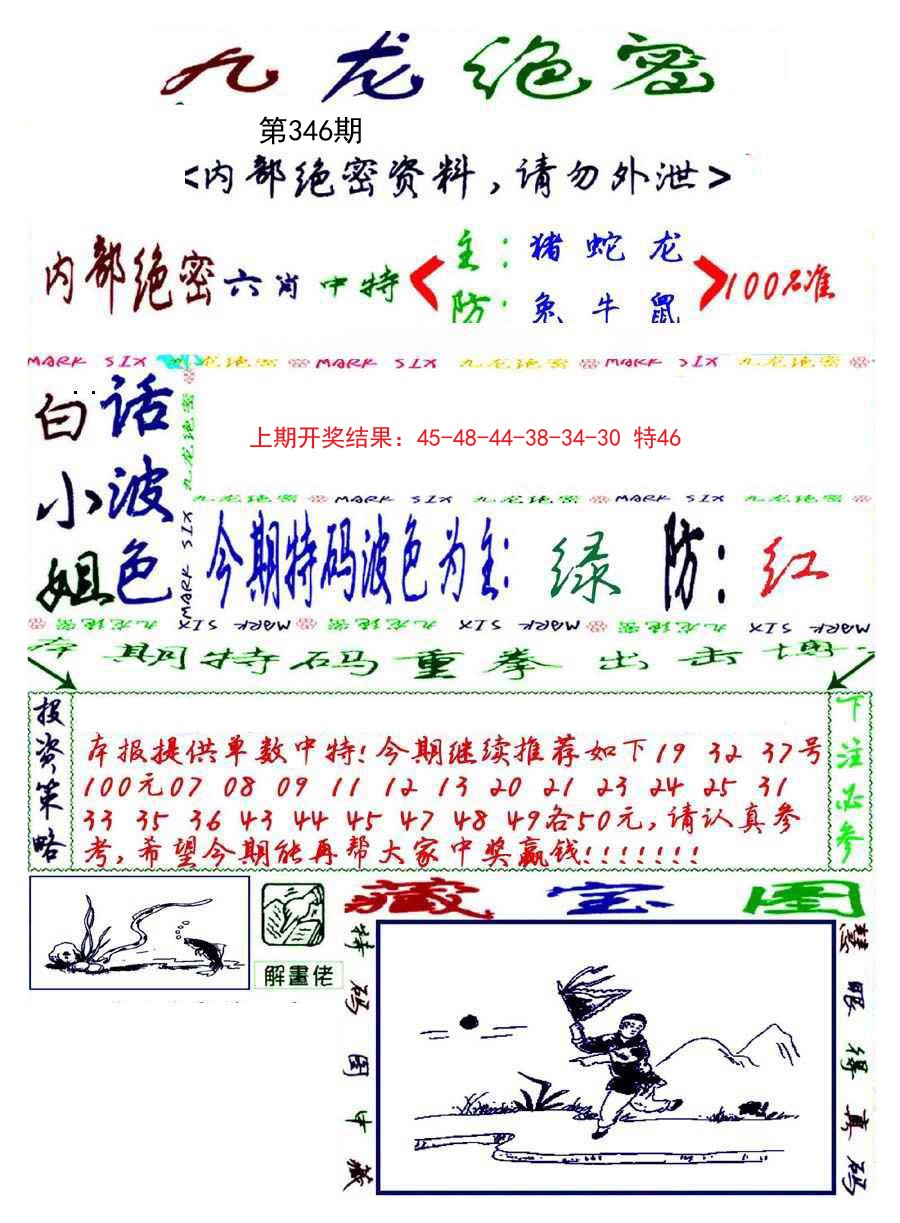 九龙绝密
第346期
<内部绝密资料,请勿外泄>
内部绝密六肖中特
主:猪蛇龙
防:兔牛鼠
100%准
MARK SIX 九龙绝密 MARK SIX 九龙绝密 MARK SIX 九龙绝密
白话小波姐色
九龙绝密
MARK SIX
上期开奖结果:45-48-44-38-34-30 特46
九龙绝密 MARK SIX 九龙绝密 MARK SIX 九龙绝密
今期特码波色为主:绿 防:红
九龙绝密 MARK SIX 九龙绝密 MARK SIX 九龙绝密 MARK SIX
本期特码重拳出击
投资策略
本报提供单数中特!今期继续推荐如下19 32 37号
100元07 08 09 11 12 13 20 21 23 24 25 31
33 35 36 43 44 45 47 48 49各50元,请认真参
考,希望今期能再帮大家中奖赢钱!!!!!!!
下注必参
解畫佬
藏宝图
特码图中藏
慧眼得真码